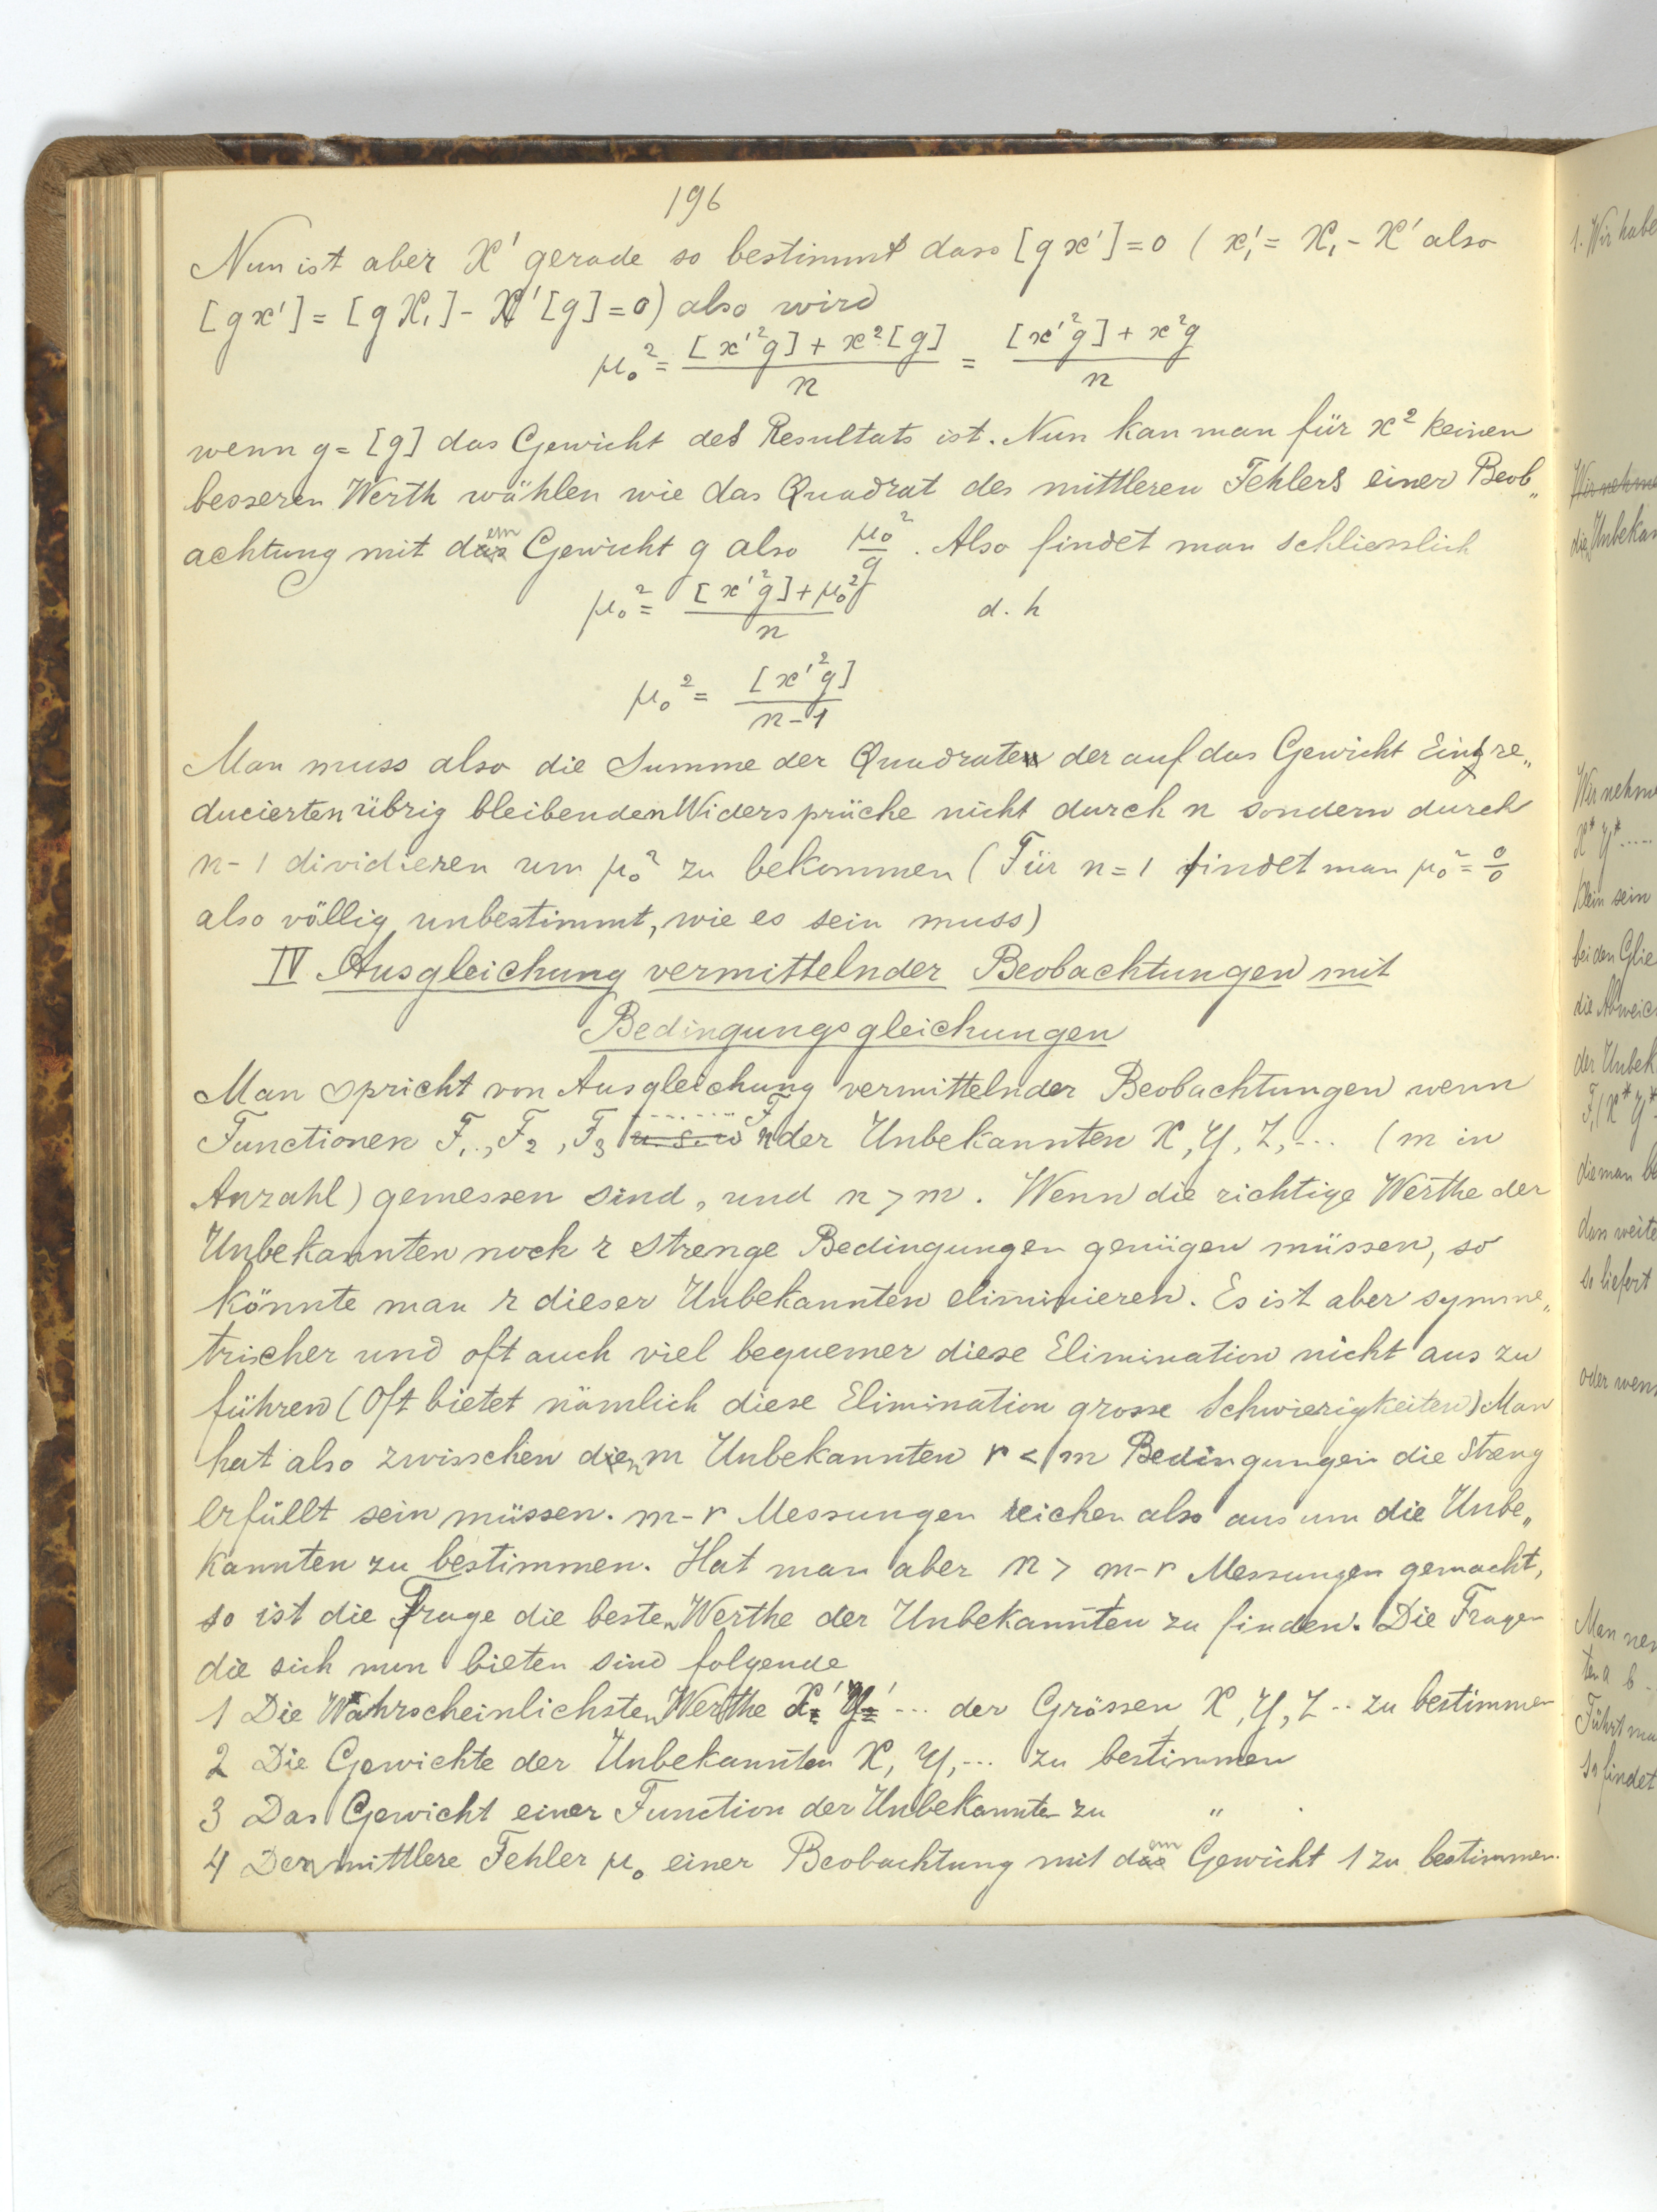 196
Nun ist aber X' gerade so bestimmt dass [g x'] = 0 ( x₁' = X₁ - X' also
[g x'] = [g X₁] - X' [g] = 0) also wird
μ₀² = ([x'²g] + x²[g]) / n = ([x'²g] + x²g) / n
wenn g = [g] das Gewicht des Resultats ist. Nun kan man für x² keinen
besseren Werth wählen wie das Quadrat des mittleren Fehlers einer Beob„
achtung mit dem Gewicht g also μ₀²/g. Also findet man schliesslich
μ₀² = ([x'²g] + μ₀²) / n d. h
μ₀² = [x'²g] / (n-1)
Man muss also die Summe der Quadrate der auf das Gewicht Eins re„
ducierten übrig bleibenden Widersprüche nicht durch n sondern durch
n-1 dividieren um μ₀² zu bekommen (Für n = 1 findet man μ₀² = 0/0
also völlig unbestimmt, wie es sein muss)
IV Ausgleichung vermittelnder Beobachtungen mit
Bedingungsgleichungen
Man spricht von Ausgleichung vermittelnder Beobachtungen wenn
Functionen F₁, F₂, F₃ ...... Fn der Unbekannten X, Y, Z, ... (m in
Anzahl) gemessen sind, und n > m. Wenn die richtige Werthe der
Unbekannten noch r strenge Bedingungen genügen müssen, so
könnte man r dieser Unbekannten eliminieren. Es ist aber symme„
trischer und oft auch viel bequemer diese Elimination nicht aus zu
führen (Oft bietet nämlich diese Elimination grosse Schwierigkeiten) Man
hat also zwisschen den m Unbekannten r < m Bedingungen die Streng
erfüllt sein müssen. m-r Messungen reichen also aus um die Unbe„
kannten zu bestimmen. Hat man aber n > m-r Messungen gemacht,
so ist die Frage die besten Werthe der Unbekannten zu finden. Die Fragen
die sich nun bieten sind folgende
1 Die Wahrscheinlichsten Werthe X' Y' ... der Grössen X, Y, Z .. zu bestimmen
2 Die Gewichte der Unbekannten X, Y, ... zu bestimmen
3 Das Gewicht einer Function der Unbekannten zu "
4 Den mittlere Fehler μ₀ einer Beobachtung mit dem Gewicht 1 zu bestimmen.
1. Wir habe
Wir nehme
die Unbekan
Wir nehm
X* Y* .....
klein sein
bei den Glie
die Abweic
der Unbek
F₁(X* Y*
die man be
dan weite
so liefert
oder wen
Man nen
ten a b
Führt ma
so findet